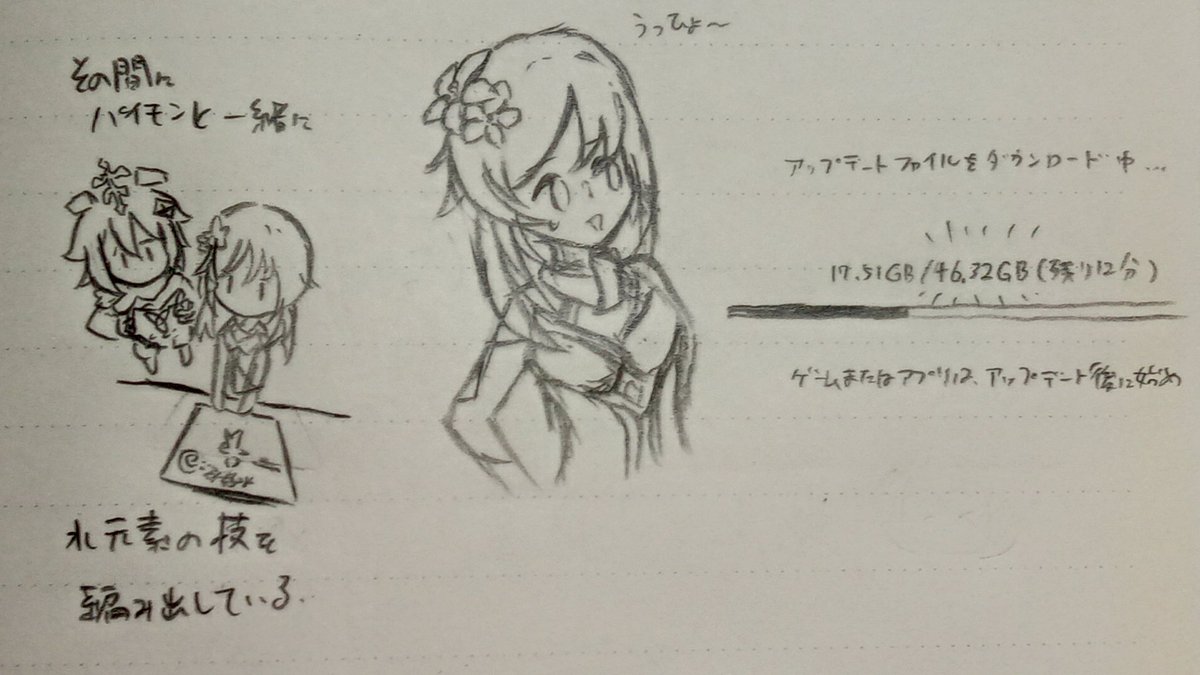 うってひょ〜
その間に
パイモンと一緒に
アップデートファイルをダウンロード中...
17.51GB/46.32GB(残り12分)
ゲームまたはアプリは、アップデート後に始め
水元素の技を
編み出している.